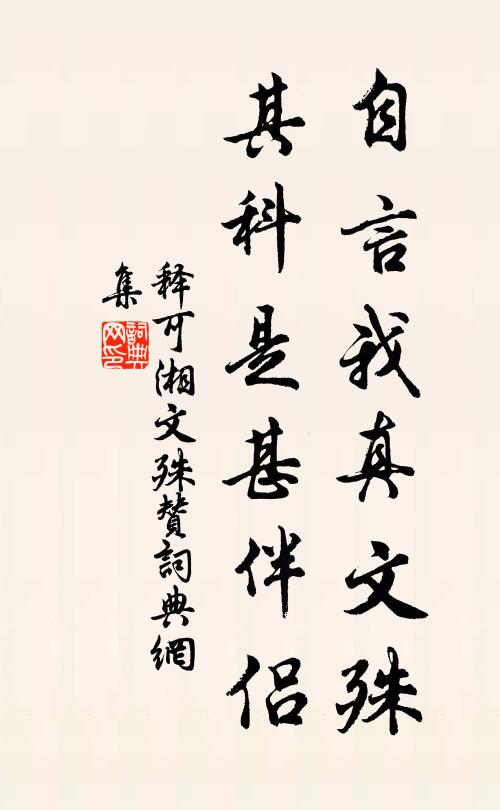 自言我真文殊
其科是甚伴侣
释可湘文殊赞詞典網
集
詞典网印